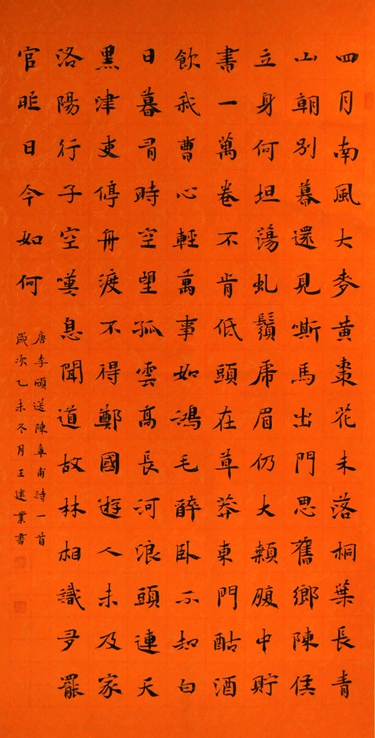 四月南風大麥黃棗花未落桐葉長青
山朝別暮還見嘶馬出門思舊鄉陳侯
立身何坦蕩虬鬚虎眉仍大顙腹中貯
書一萬卷不肯低頭在草莽東門酤酒
飲我曹心輕萬事如鴻毛醉臥不知白
日暮有時空望孤雲高長河浪頭連天
黑津吏停舟渡不得鄭國遊人未及家
洛陽行子空嘆息聞道故林相識多罷
官昨日今如何
唐李頎送陳章甫詩一首
歲次乙未冬月王建業書